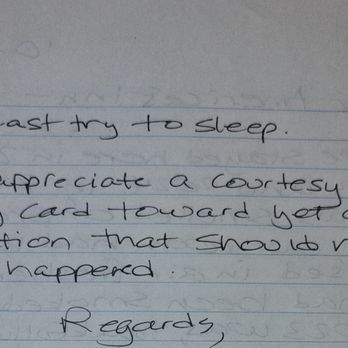 east try to sleep.
appreciate a courtesy
card toward yet
tion that should
happened.
Regards,